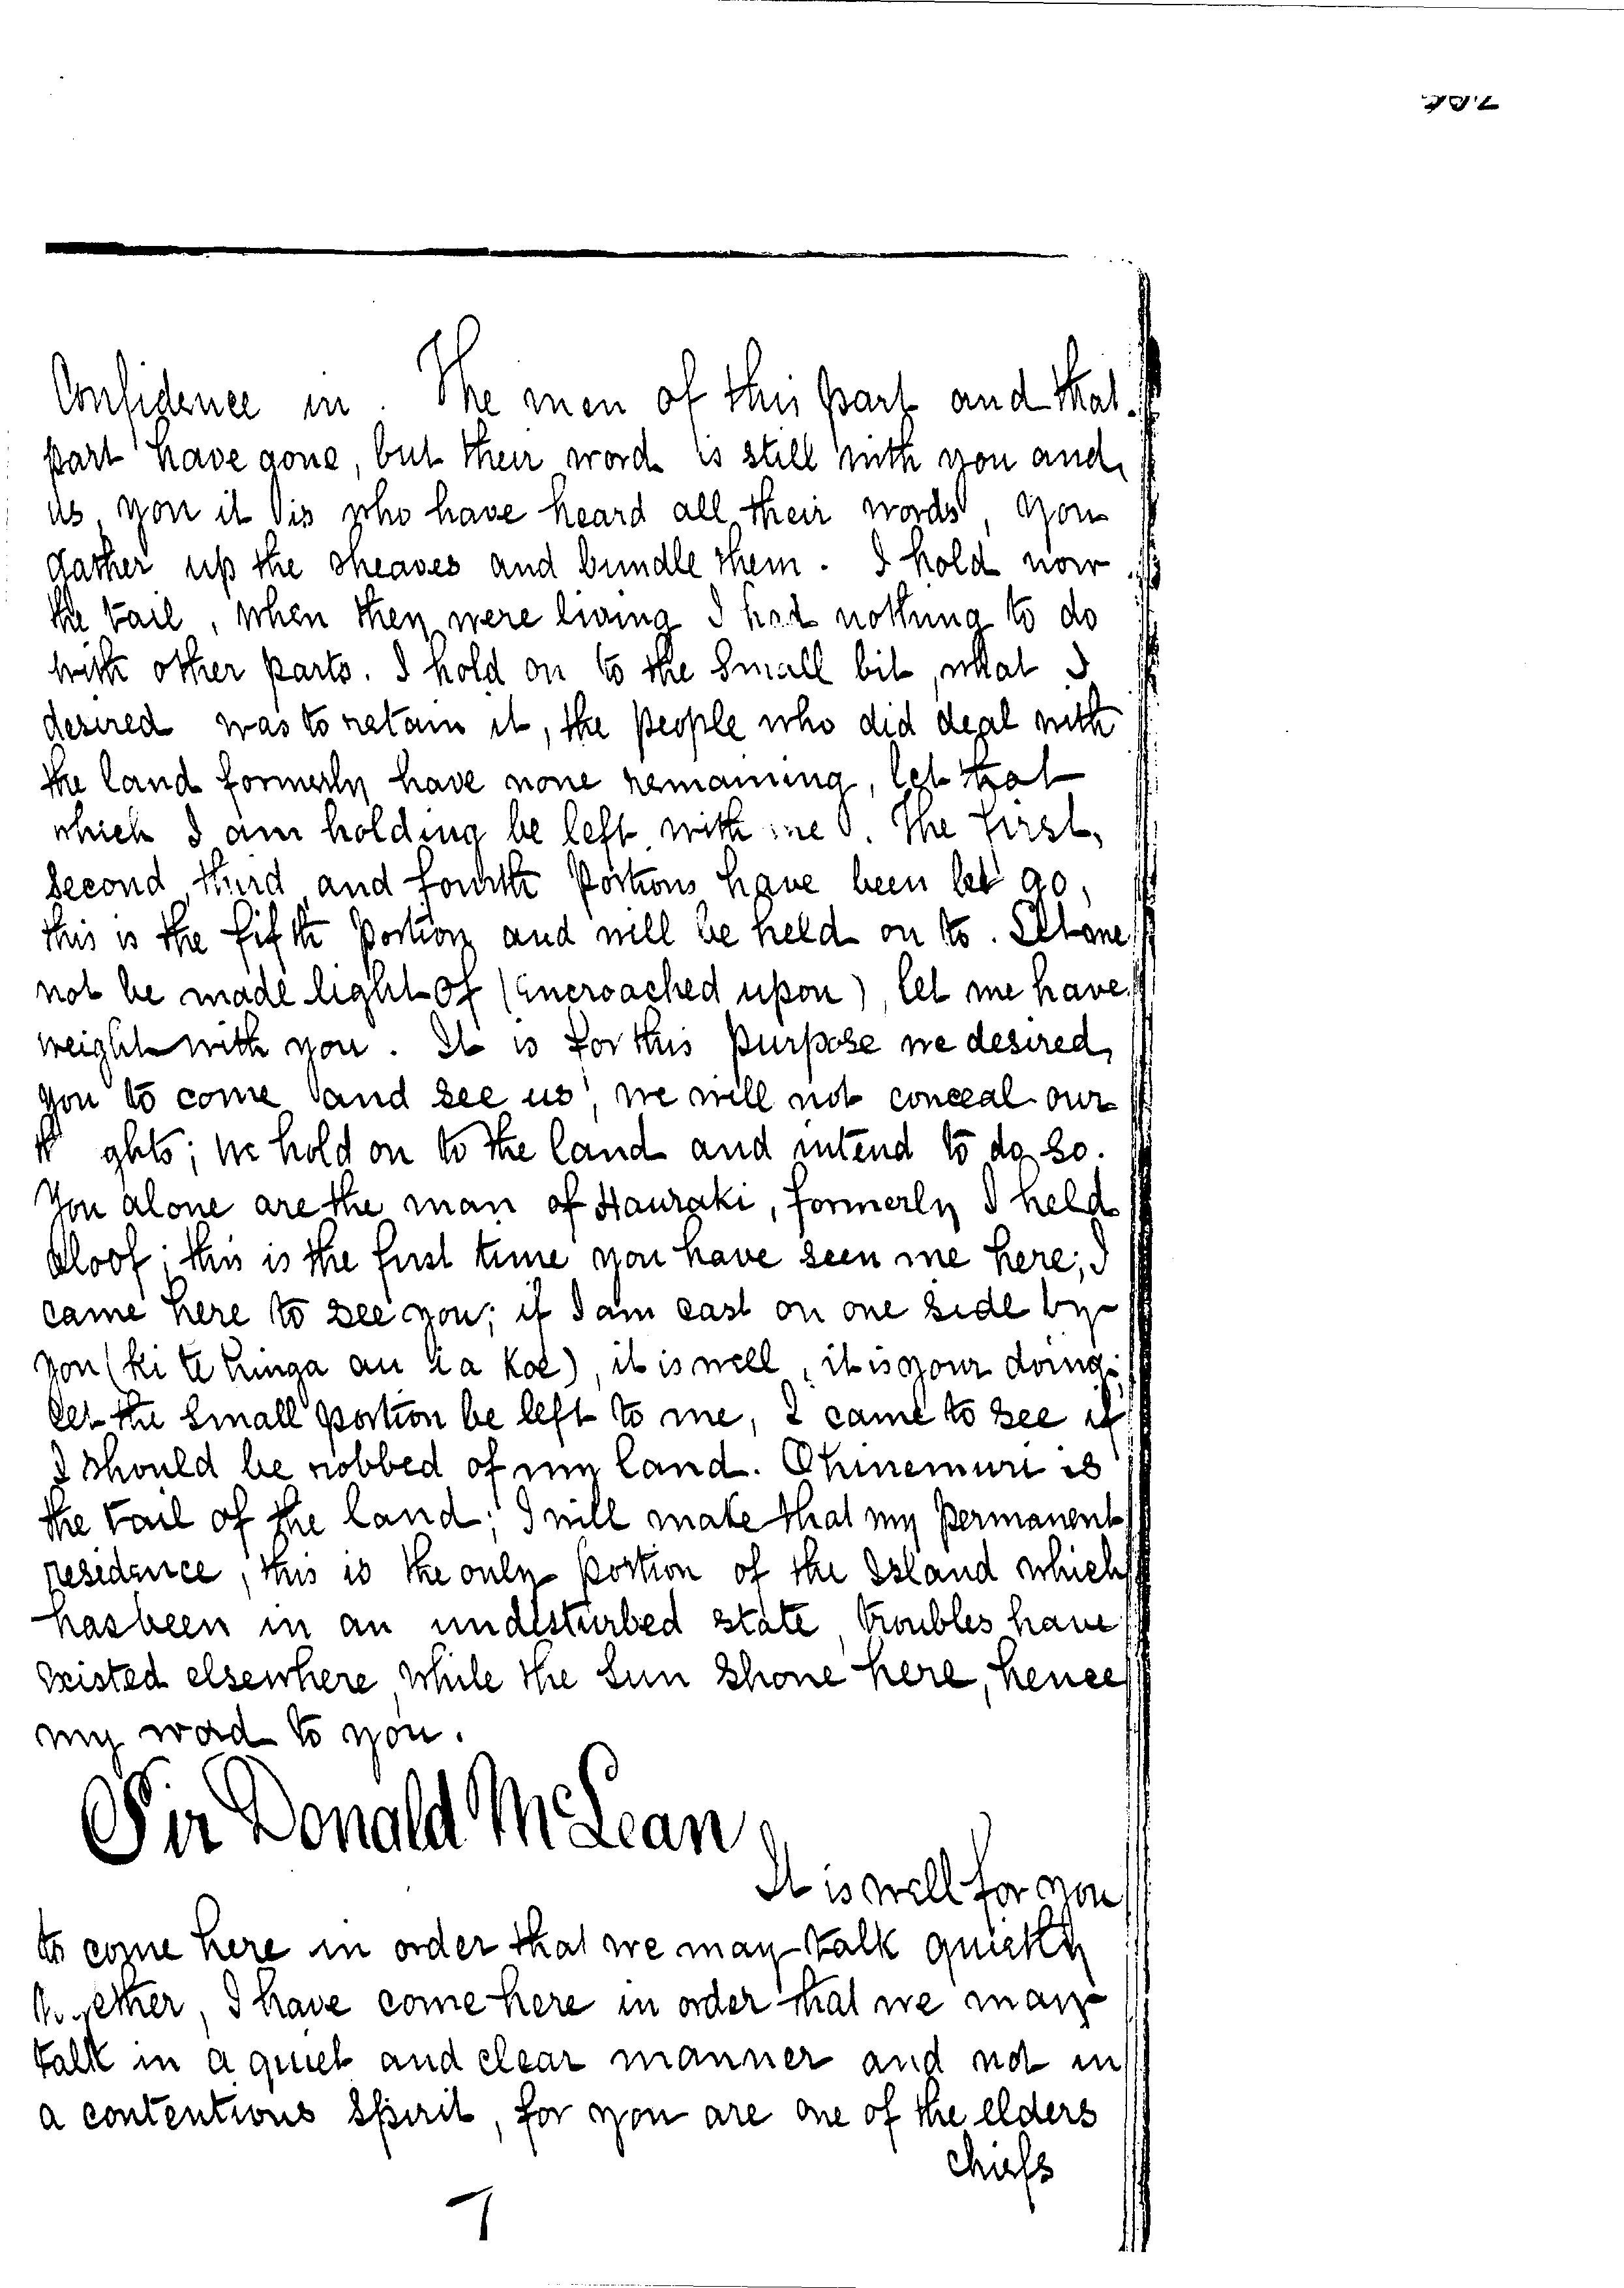 Confidence in. The men of this part and that
part have gone, but their word is still with you and
us, you it is who have heard all their words, you
gather up the sheaves and bundle them. I hold now
the tail, when they were living I had nothing to do
with other parts. I hold on to the Small bit, what I
desired was to retain it, the people who did deal with
the land formerly have none remaining, let that
which I am holding be left with me. The first,
Second, third, and fourth Portions have been let go,
this is the fifth Portion and will be held on to. Let me
not be made light of (Encroached upon), let me have
weight with you. It is for this purpose we desired
you to come and see us, we will not conceal our
ghts; We hold on to the land and intend to do so.
You alone are the man of Hauraki, formerly I held
aloof; this is the first time you have seen me here; I
came here to see you; if I am cast on one side by
you (ki te hinga au i a koe), it is well, it is your doing;
Let the Small portion be left to me, I came to see if
I should be robbed of my land. Ohinemuri is
the tail of the land; I will make that my permanent
residence, this is the only portion of the Island which
has been in an undisturbed state, troubles have
existed elsewhere, while the Sun Shone here, hence
my word to you.
Sir Donald McLean
It is well for you
to come here in order that we may talk quietly
together, I have come here in order that we may
talk in a quiet and clear manner and not in
a contentious Spirit, for you are one of the elders
chiefs
7